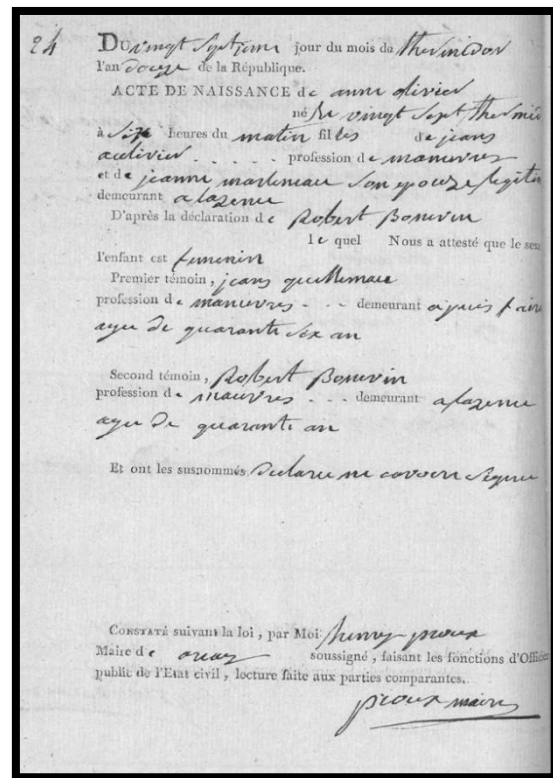 24
DU vingt Septieme jour du mois de thermidor
l'an douze de la République.
ACTE DE NAISSANCE de anne olivier
né le vingt Sept thermi
à Six heures du matin filles de jean
ollivier . . . . . profession de manœuvres
et de jeanne martineau Son epouze legitim
demeurant a lazenne
D'après la déclaration de Robert Bonnevin
le quel Nous a attesté que le sexe
l'enfant est femenin
Premier témoin, jean
profession de manœuvres - - - demeurant a puis faire
agee de quarante Six an
Second témoin, Robert Bonnevin
profession de mauvres . . . demeurant a lazenne
agee de quarante an
Et ont les susnommés declaree ne savoir Signer
CONSTATÉ suivant la loi, par Moi henry proux
Maire de soussigné, faisant les fonctions d'Officier
public de l'Etat civil, lecture faite aux parties comparantes.
proux maire